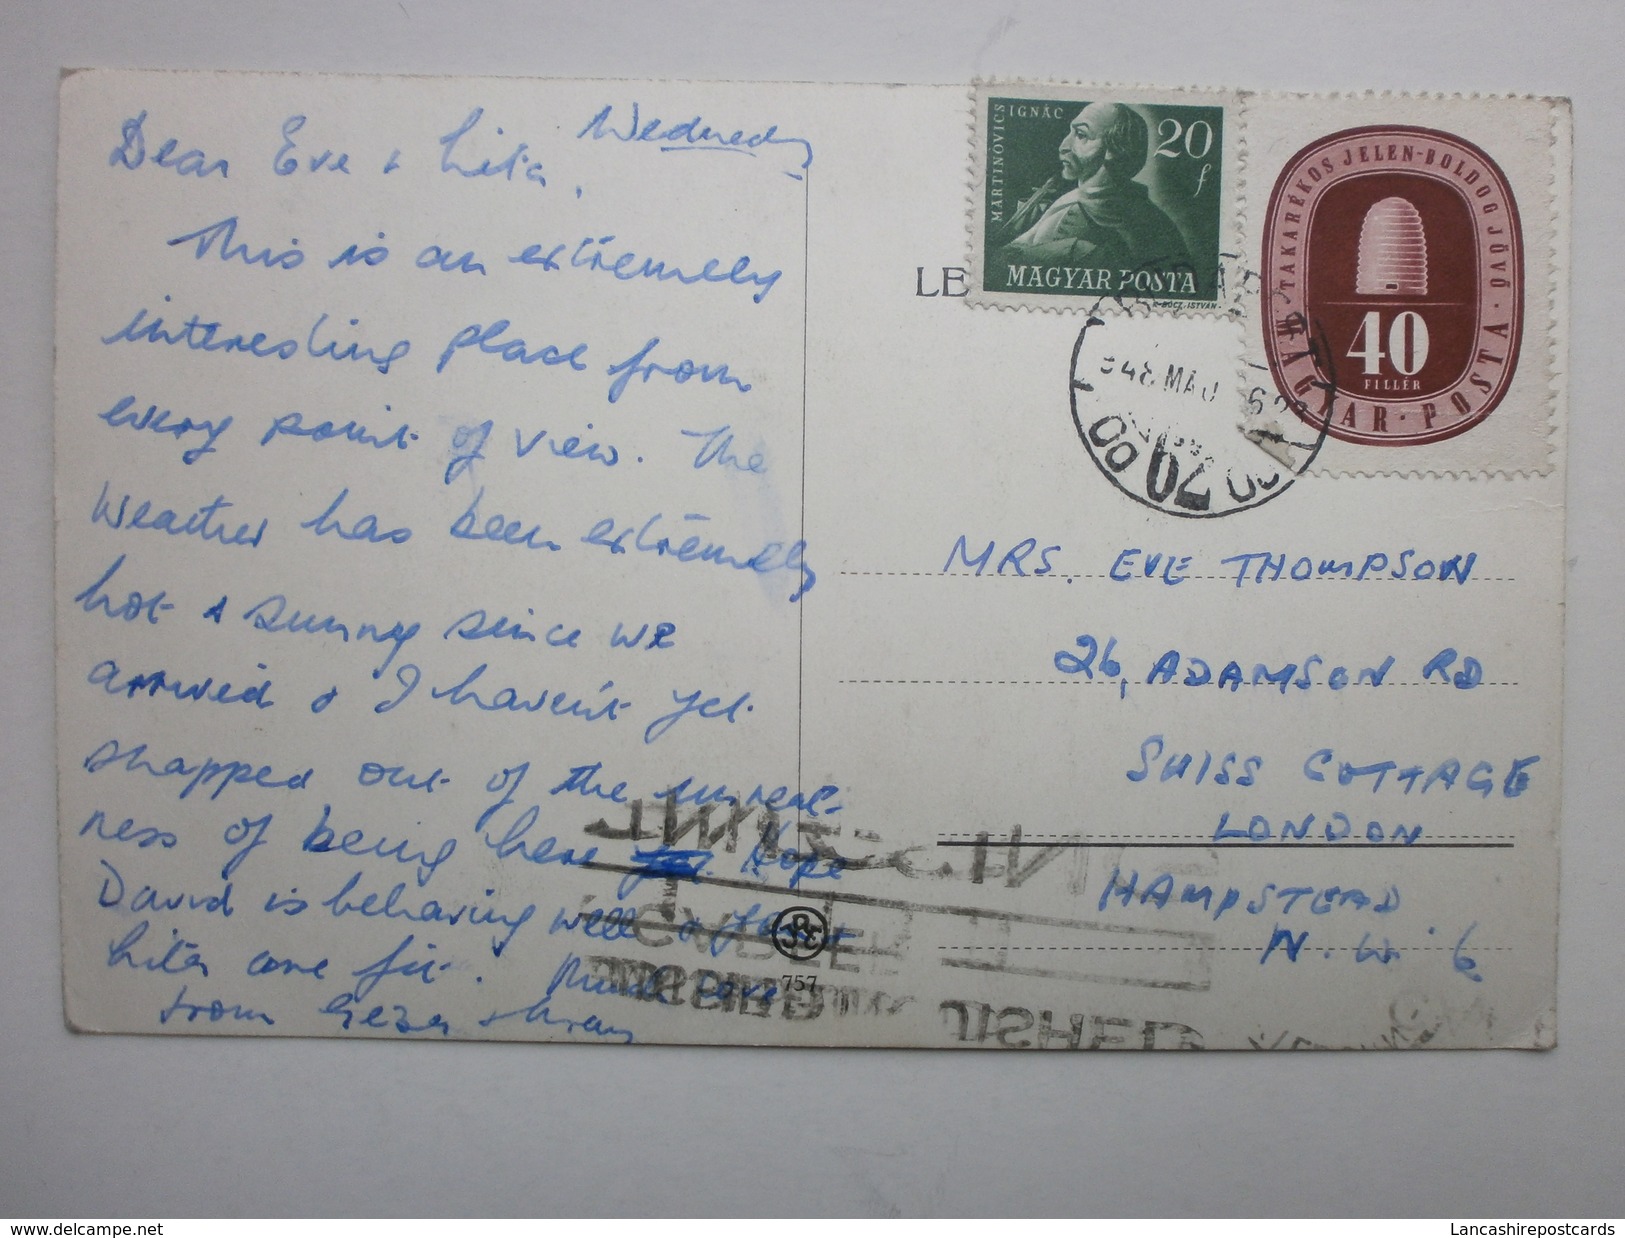 Dear Eve & Lita, Wednesday
This is an extremely
interesting place from
every point of view. The
weather has been extremely
hot & sunny since we
arrived & I haven't yet
snapped out of the unreal-
ness of being here. Hope
David is behaving well &
Lita are fit. Much love
from Geza &
MARTINOVICS IGNÁC
20 f
MAGYAR POSTA
TAKARÉKOS JELEN-BOLDOG JÖVŐ
40
FILLÉR
MAGYAR · POSTA
LE
948 MAJ
MRS. EVE THOMPSON
26, ADAMSON RD
SWISS COTTAGE
LONDON
HAMPSTEAD
N.W.6
757
Lancashirepostcards